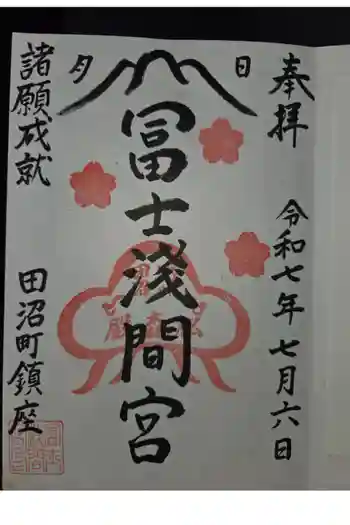 奉拝
令和七年七月六日
日
夕
冨士淺間宮
諸願成就
田沼町鎮座